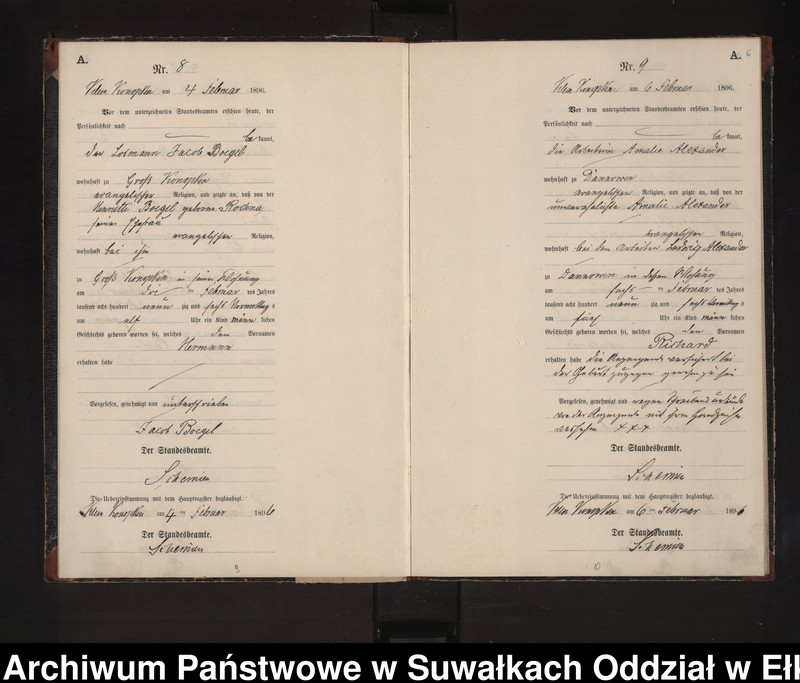 A.
Nr. 8
Klein Konopken am 4 Februar 1896.
Vor dem unterzeichneten Standesbeamten erschien heute, der
Persönlichkeit nach
be kannt,
der Losmann Jacob Boegel
wohnhaft zu Groß Konopken
evangelischer Religion, und zeigte an, daß von der
Henriette Boegel geborene
seiner Ehefrau
evangelischer Religion,
wohnhaft bei ihm
zu Groß Konopken in seiner Wohnung
am drei ten Februar des Jahres
tausend acht hundert neun zig und sechs Vormittags
um elf Uhr ein Kind männ lichen
Geschlechts geboren worden sei, welches den Vornamen
Hermann
erhalten habe
Vorgelesen, genehmigt und unterschrieben
Jacob Boegel
Der Standesbeamte.
Die Uebereinstimmung mit dem Hauptregister beglaubigt.
Klein Konopken am 4 ten Februar 1896
Der Standesbeamte.
9
A. 6
Nr. 9
Klein Konopken am 6 Februar 1896.
Vor dem unterzeichneten Standesbeamten erschien heute, der
Persönlichkeit nach
be kannt,
die Arbeiterin Amalie Alexander
wohnhaft zu Dannowen
evangelischer Religion, und zeigte an, daß von der
unverehelichte Amalie Alexander
evangelischer Religion,
wohnhaft bei dem Arbeiter Ludwig Alexander
zu Dannowen in dessen Wohnung
am sechs ten Februar des Jahres
tausend acht hundert neun zig und sechs Vormittag s
um fünf Uhr ein Kind männ lichen
Geschlechts geboren worden sei, welches den Vornamen
Richard
erhalten habe die Anzeigende versichert bei
der Geburt zugegen gewesen zu sein
Vorgelesen, genehmigt und wegen
von der Anzeigende mit ihrem Handzeichen
versehen + + +
Der Standesbeamte.
Die Uebereinstimmung mit dem Hauptregister beglaubigt.
Klein Konopken am 6 ten Februar 1896
Der Standesbeamte.
10
Archiwum Państwowe w Suwałkach Oddział w Ełk